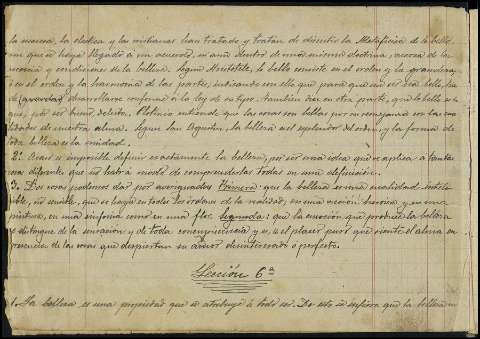 la escocesa, la ecléctica y las cristianas han tratado y tratan de discutir la Metafísica de lo bello
sin que se haya llegado á un acuerdo, ni aun dentro de una misma doctrina, acerca de la
esencia y condiciones de la belleza. Según Aristóteles, lo bello consiste en el orden y la grandeza,
ó en el orden y la harmonía de las partes, indicando con ello que para que un ser sea bello, ha
de (guardar) desarrollarse conforme á la ley de su tipo, también dice en otra parte, que lo bello es lo
que, por ser bueno, deleita. Plotino entiende que las cosas son bellas por su semejanza con las cua-
lidades de nuestra alma. Según San Agustín, la belleza es el esplendor del orden, y la forma de
toda belleza es la unidad.
2ª. Acaso es imposible definir exactamente la belleza, por ser una idea que se aplica a tantas
cosas diferentes, que no habrá modo de comprenderlas todas en una definición.
3. Dos cosas podemos dar por averiguadas. Primero: que la belleza es una cualidad inteli-
gible, no sensible, que se halla en todos los órdenes de la realidad, en una acción heroica y en una
pintura, en una sinfonía como en una flor. Segunda: que la emoción que produce la belleza
se distingue de la sensación y de toda concupiscencia y es el placer puro que siente el alma en
presencia de las cosas que despiertan su amor desinteresado ó perfecto.
Lección 6ª
1. La belleza es una propiedad que se atribuye á todo ser. De esto se infiere que la belleza